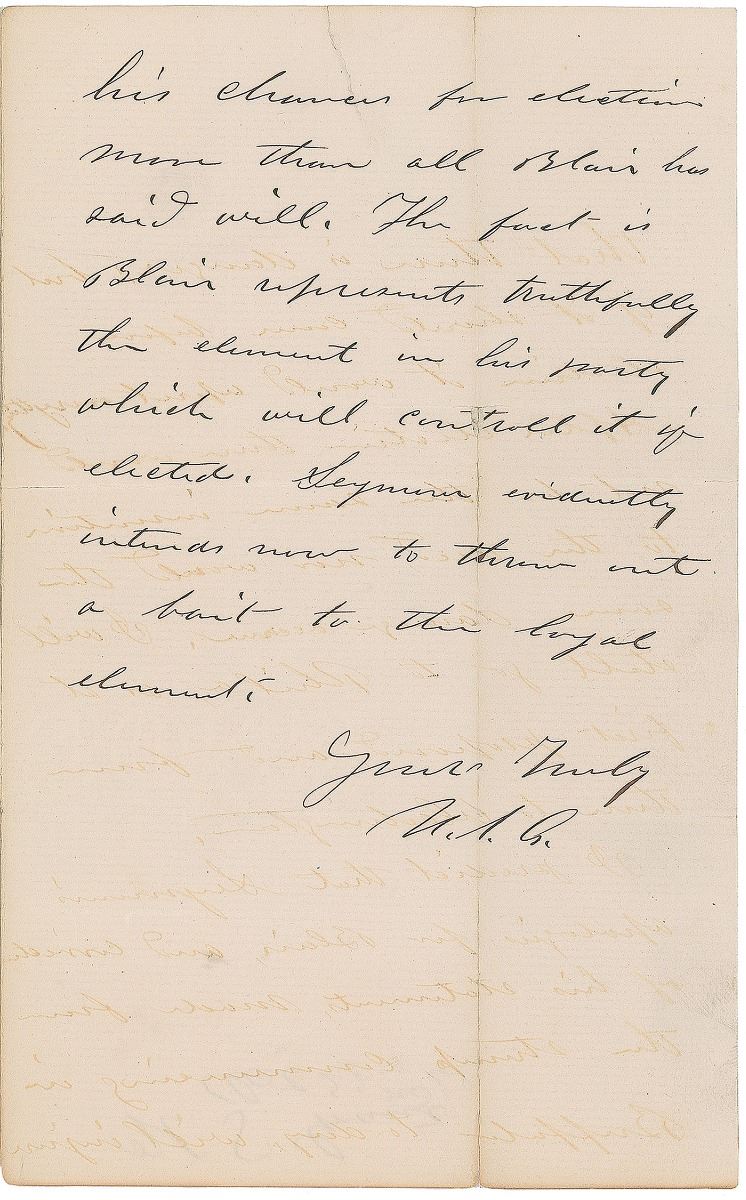 his chances for election
more than all Blair has
said will. The fact is
Blair represents truthfully
the element in his party
which will controll it if
elected. Seymour evidently
intends now to throw out
a bait to the loyal
element.
Yours Truly
U.S.G.